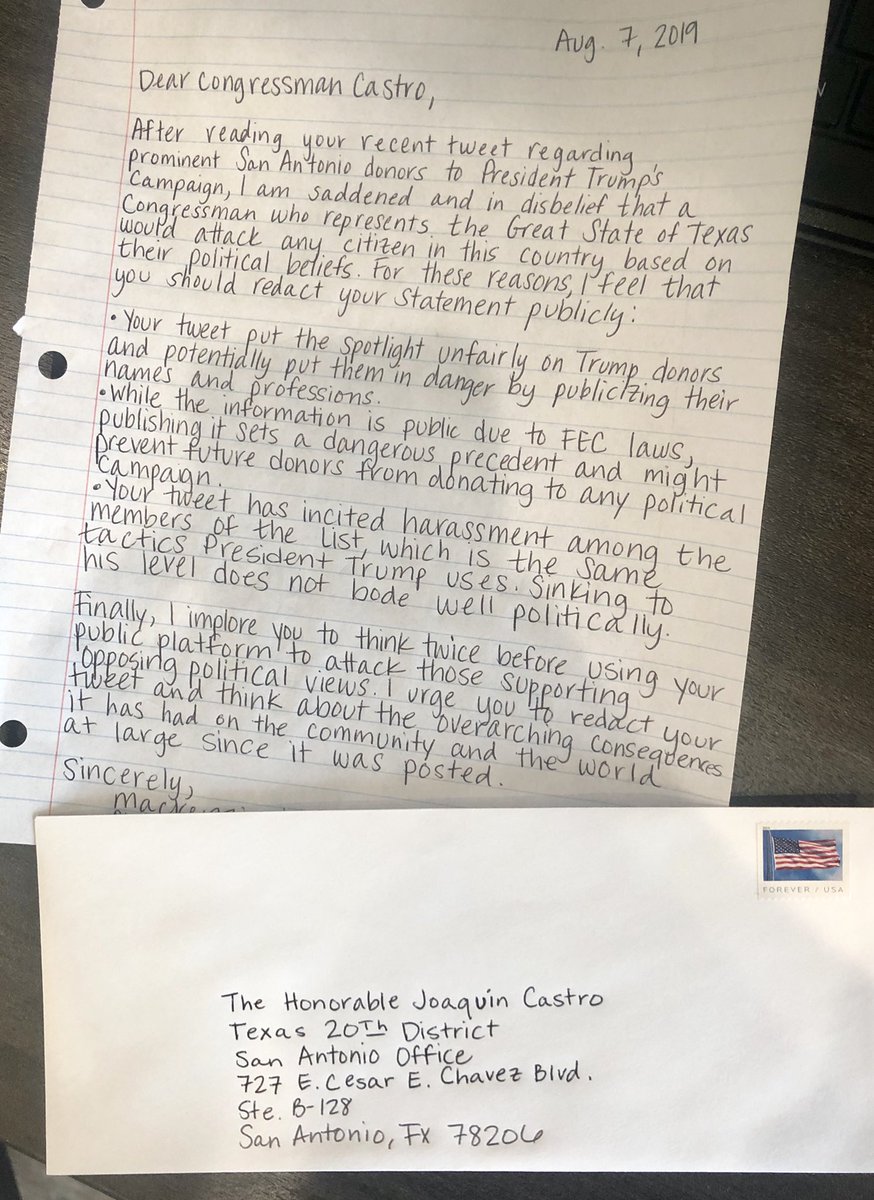 Aug. 7, 2019
Dear Congressman Castro,
After reading your recent tweet regarding
prominent San Antonio donors to President Trump's
Campaign, I am saddened and in disbelief that a
Congressman who represents the Great State of Texas
would attack any citizen in this country based on
their political beliefs. For these reasons, I feel that
you should redact your statement publicly:
• Your tweet put the spotlight unfairly on Trump donors
and potentially put them in danger by publicizing their
names and professions.
• While the information is public due to FEC laws,
publishing it sets a dangerous precedent and might
prevent future donors from donating to any political
campaign.
• Your tweet has incited harassment among the
members of the list, which is the same
tactics President Trump uses. Sinking to
his level does not bode well politically.
Finally, I implore you to think twice before using your
public platform to attack those supporting
opposing political views. I urge you to redact your
tweet and think about the overarching consequences
it has had on the community and the world
at large since it was posted.
Sincerely,
FOREVER / USA
The Honorable Joaquin Castro
Texas 20Th District
San Antonio Office
727 E. Cesar E. Chavez Blvd.
Ste. B-128
San Antonio, Tx 78206